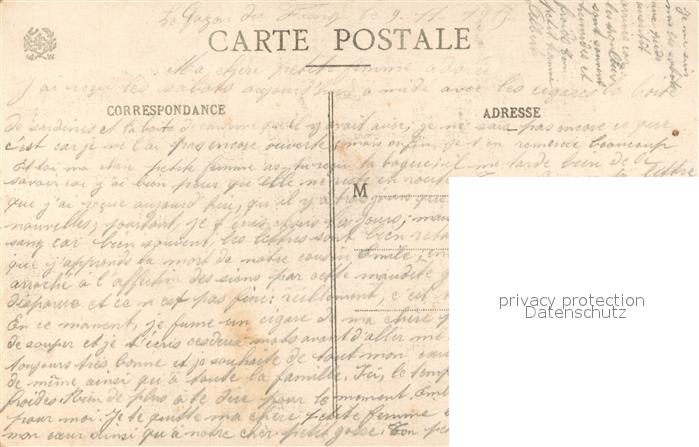 Le 9. 11. 1915
CARTE POSTALE
Ma chère petite femme adorée
J'ai reçu les sabots aujourd'hui à midi avec les cigares la boite
CORRESPONDANCE
ADRESSE
de sardines et la boite de qu'il y avait avec, je ne sais pas encore ce que
c'est car je ne l'ai pas encore ouverte mais enfin je t'en remercie beaucoup
Et toi ma chère petite femme as tu reçu la bague il me tarde bien de le
savoir car j'ai bien peur qu'elle me reste en route
lettre
M
que j'ai reçue aujourd'hui, qu'il y a trois jours que
nouvelles, pourtant, je t'écris tous les jours, mau
sang car bien souvent, les lettres sont bien reta
que j'apprends la mort de notre cousin Emile, en
arraché à l'affection des siens par cette maudite g
disparue et ce n'est pas fini réellement, c'est
En ce moment, je fume un cigare de ma chère p
de souper et je t'écris ces deux mots avant d'aller me
toujours très bonne et je souhaite de tout mon cœur
de même ainsi qu'à toute la famille. Ici, le temp
froides. Rien de plus à te dire pour le moment, Emb
pour moi. Je te quitte ma chère petite femme e
mon cœur ainsi qu'à notre cher petit gosse. Ton pe
privacy protection
Datenschutz